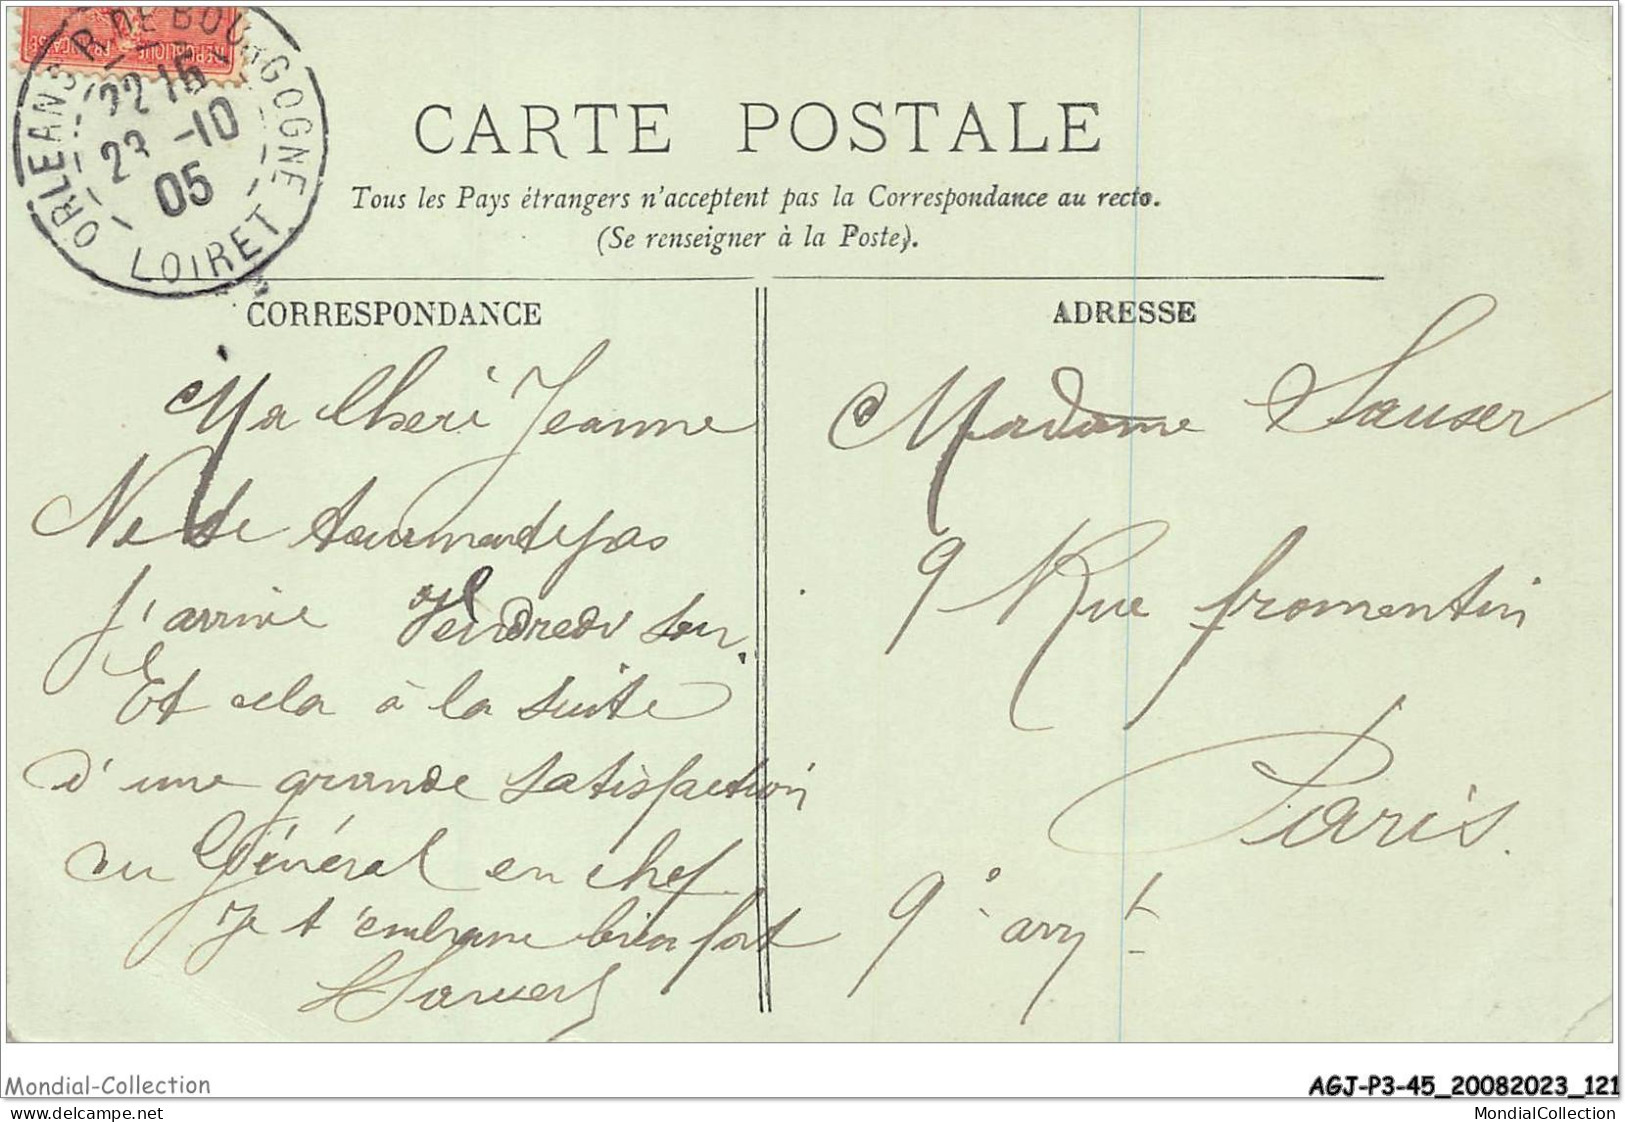 RÉPUBLIQUE FRANÇAISE
ORLEANS R. DE BOURGOGNE
22 15
23 -10
05
LOIRET
CARTE POSTALE
Tous les Pays étrangers n'acceptent pas la Correspondance au recto.
(Se renseigner à la Poste).
CORRESPONDANCE
Ma Cheri Jeanne
Ne te tourmente pas
J'arrive Vendredi soir.
Et cela à la suite
d'une grande satisfaction
au Général en chef
Je t'embrasse bien fort
Sauser
ADRESSE
Madame Sauser
9 Rue fromentin
Paris.
9e arrt
Mondial-Collection
AGJ-P3-45_20082023_121
Mondial Collection
MondialCollection